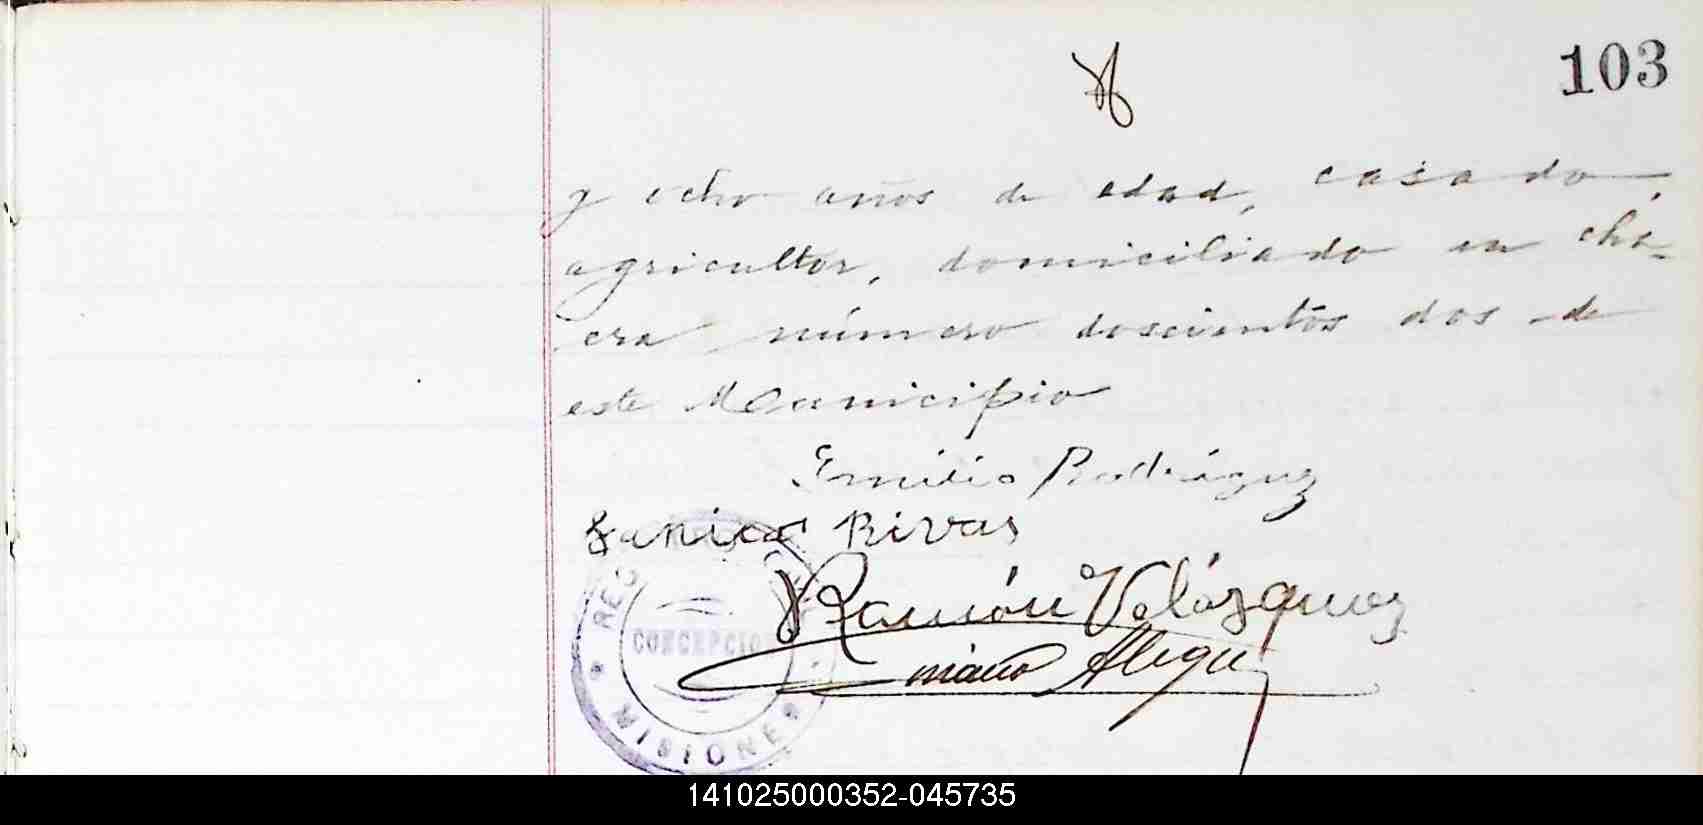 103
y ocho años de edad, casado,
agricultor, domiciliado en chá-
cra número doscientos dos de
este Municipio
Emilio Rodríguez
Rivas
Ramón Velázquez
CONCEPCION
MISIONES
141025000352-045735